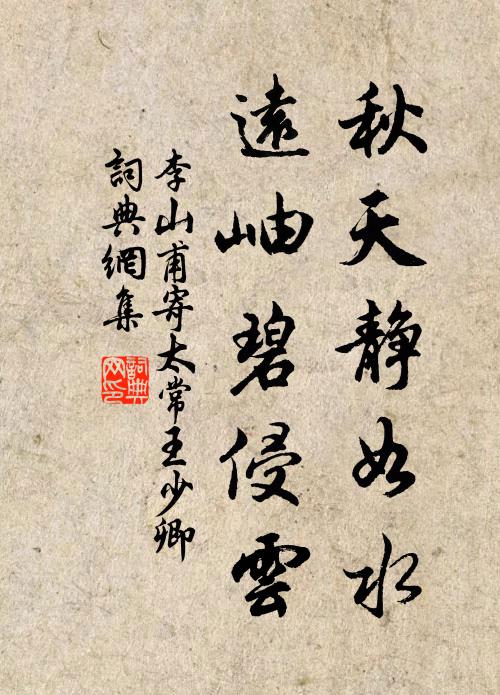 秋天静如水
遠岫碧侵雲
李山甫寄太常王少卿
詞典網集
詞典网印